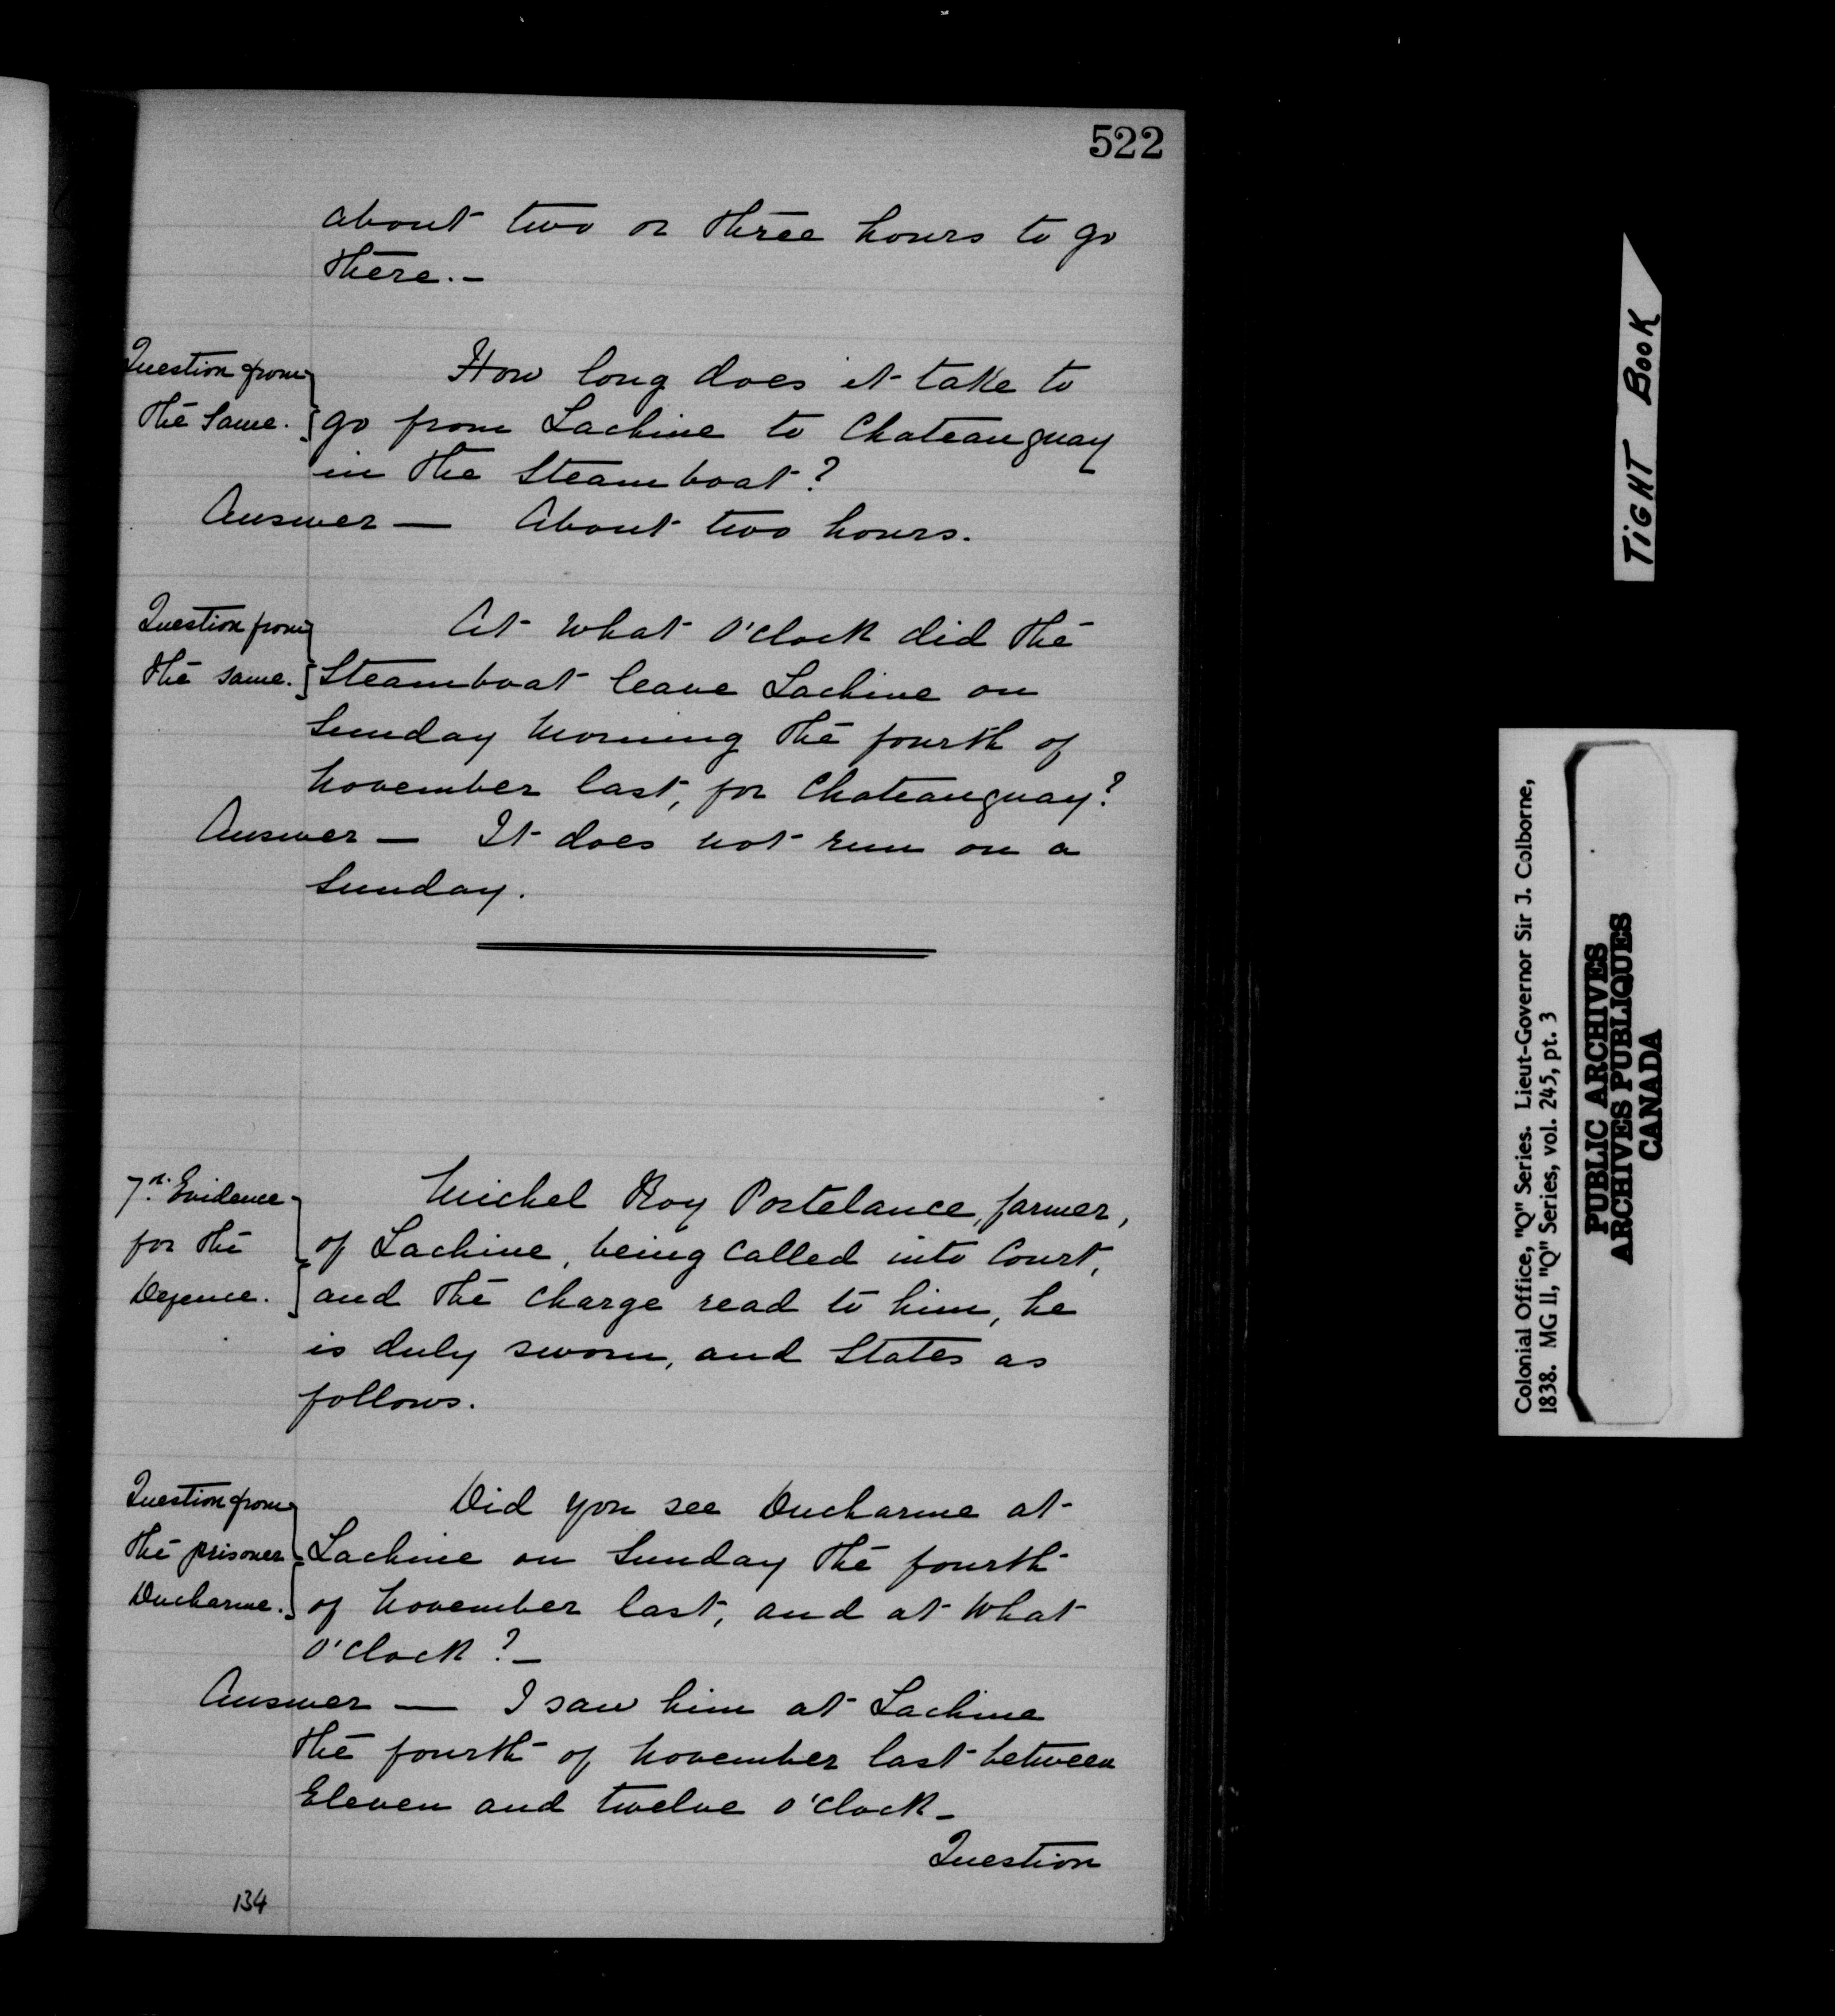 522
about two or three hours to go
there.—
Question from
the same.
How long does it take to
go from Lachine to Chateauguay
in the Steamboat?
Answer — About two hours.
Question from
the same.
At what o'clock did the
Steamboat leave Lachine on
Sunday Morning the fourth of
November last, for Chateauguay?
Answer — It does not run on a
Sunday.
7th. Evidence
for the
Defence.
Michel Roy Portelance, farmer,
of Lachine, being called into Court,
and the charge read to him, he
is duly sworn, and States as
follows.
Question from
the prisoner
Ducharme.
Did you see Ducharme at
Lachine on Sunday the fourth
of November last, and at what
o'clock?—
Answer — I saw him at Lachine
the fourth of November last between
Eleven and twelve o'clock—
Question
134
TIGHT BOOK
Colonial Office, "Q" Series. Lieut-Governor Sir J. Colborne,
1838. MG 11, "Q" Series, vol. 245, pt. 3
PUBLIC ARCHIVES
ARCHIVES PUBLIQUES
CANADA